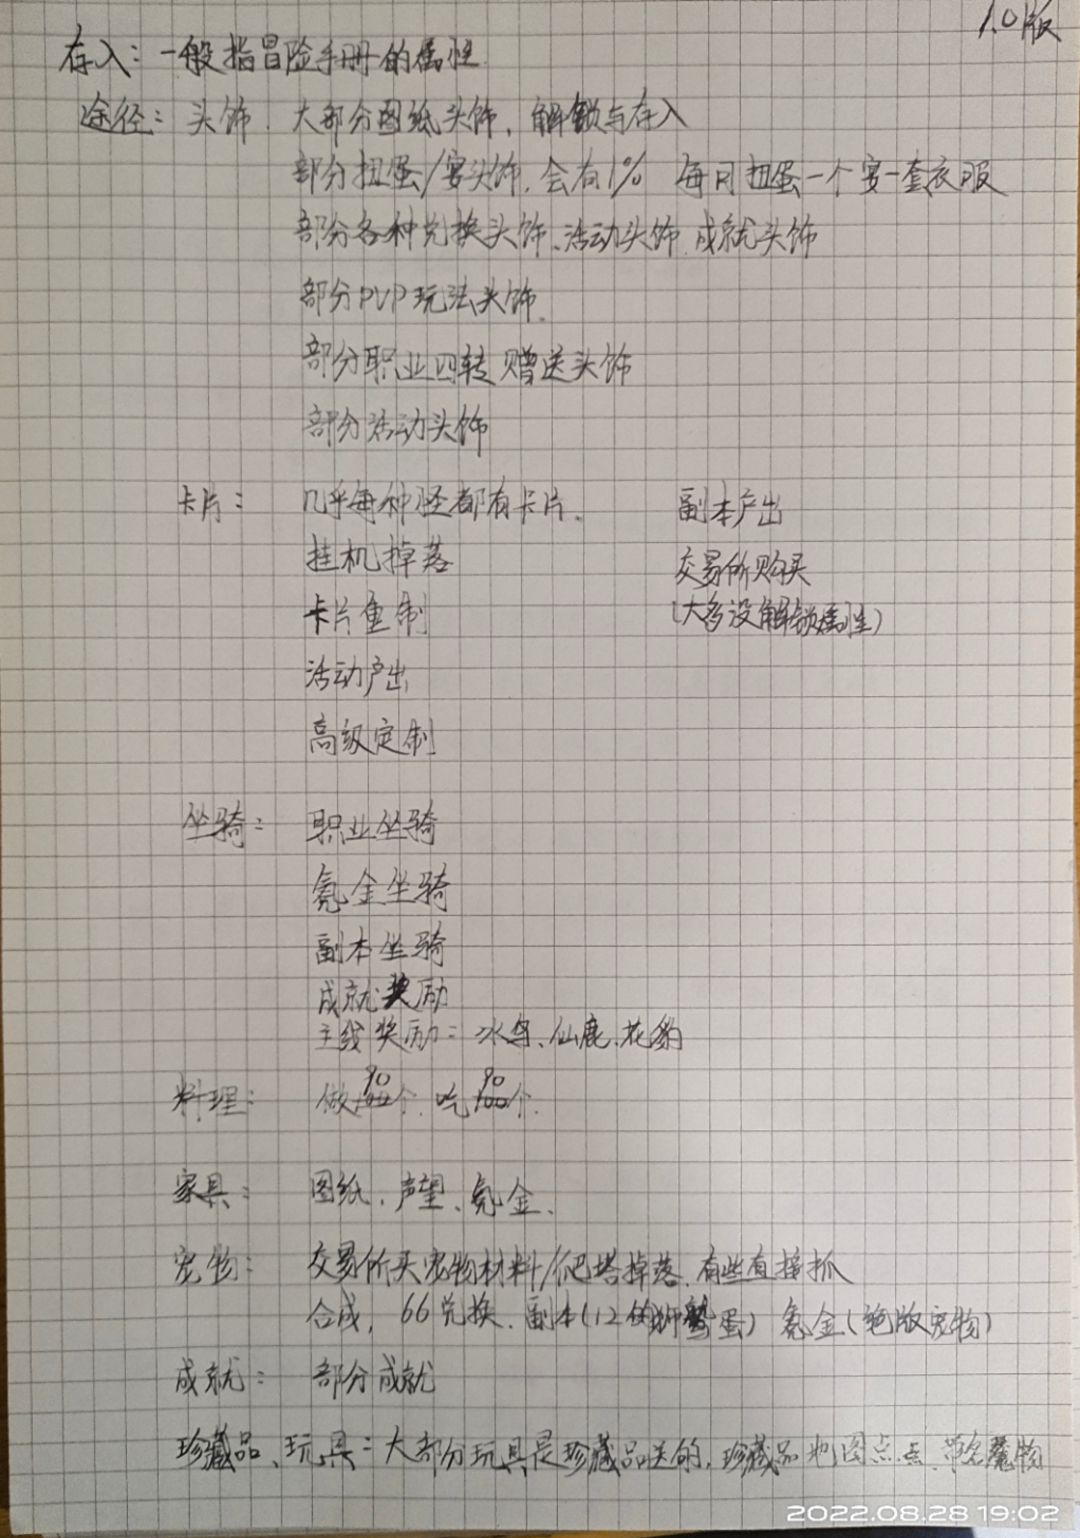 1.0版
存入：一般指冒险手册的属性
途径：头饰．大部分图纸头饰，解锁与存入
部分扭蛋/宴头饰，会有1% 每月扭蛋一个宴一套衣服
部分各种兑换头饰、活动头饰 成就头饰
部分PVP玩法头饰、
部分职业四转 赠送头饰
部分活动头饰
卡片： 几乎每种怪都有卡片． 副本产出
挂机掉落 交易所购买
卡片重制 (大多没解锁属性)
活动产出
高级定制
坐骑： 职业坐骑
氪金坐骑
副本坐骑
成就奖励
主线奖励：冰鸟、仙鹿、花豹
料理： 做90个．吃90个．
家具： 图纸、声望、氪金、
宠物： 交易所买宠物材料/爬塔掉落、有些直接抓
合成，66兑换．副本(12的狮鹫蛋) 氪金(绝版宠物)
成就： 部分成就
珍藏品、玩具：大部分玩具是珍藏品送的，珍藏品地图点点、带名魔物
2022.08.28 19:02